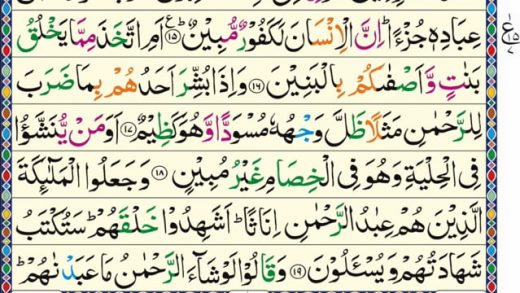 عِبَادِهٖ جُزْءًاؕ اِنَّ الْاِنْسَانَ لَكَفُوْرٌ مُّبِیْنٌؕ۠ ﴿۱۵﴾ اَمِ اتَّخَذَ مِمَّا یَخْلُقُ
بَنٰتٍ وَّاَصْفٰىكُمْ بِالْبَنِیْنَ ﴿۱۶﴾ وَاِذَا بُشِّرَ اَحَدُهُمْ بِمَا ضَرَبَ
لِلرَّحْمٰنِ مَثَلًا ظَلَّ وَجْهُهٗ مُسْوَدًّا وَّهُوَ كَظِیْمٌ ﴿۱۷﴾ اَوَمَنْ یُّنَشَّؤُا
فِی الْحِلْیَةِ وَهُوَ فِی الْخِصَامِ غَیْرُ مُبِیْنٍ ﴿۱۸﴾ وَجَعَلُوا الْمَلٰٓىِٕكَةَ
الَّذِیْنَ هُمْ عِبٰدُ الرَّحْمٰنِ اِنَاثًاؕ اَشَهِدُوْا خَلْقَهُمْؕ سَتُكْتَبُ
شَهَادَتُهُمْ وَیُسْـَٔلُوْنَ ﴿۱۹﴾ وَقَالُوْا لَوْ شَآءَ الرَّحْمٰنُ مَا عَبَدْنٰهُمْؕ